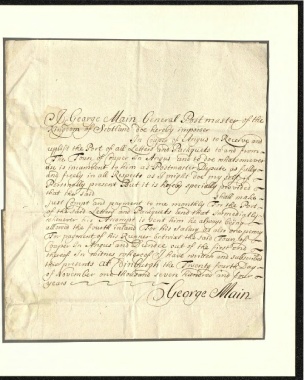 I George Main General Post master of the
Kingdom of Scotland doe hereby impower
In Coupar of Angus to Receive and
uplift the Port of all Letters and Pacquets to and from
The Town of Coupar in Angus and to doe whatsomever
is incumbent to him as Postmaster Depute as fully
and freely in all Respects as I might doe my self
Personally present But it is hereby specially provided
that the said shall make
Just Compt and payment to me monthly For the Port
of the said Letters and Pacquets and that
allowing the fourth
In payment of his Runner betwixt the said Town of
Coupar in Angus and Dundee out of the first end
thereof In witness whereof I have written and subscribed
thir presents at Edinburgh the Twenty fourth Day
of November one thousand seven hundred and four
years
George Main